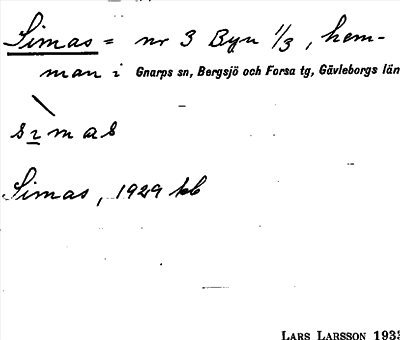 Simas = nr 3 Byn 1/3, hem-
man i Gnarps sn, Bergsjö och Forsa tg, Gävleborgs län
s i m a s
Simas, 1929 kb
LARS LARSSON 1933